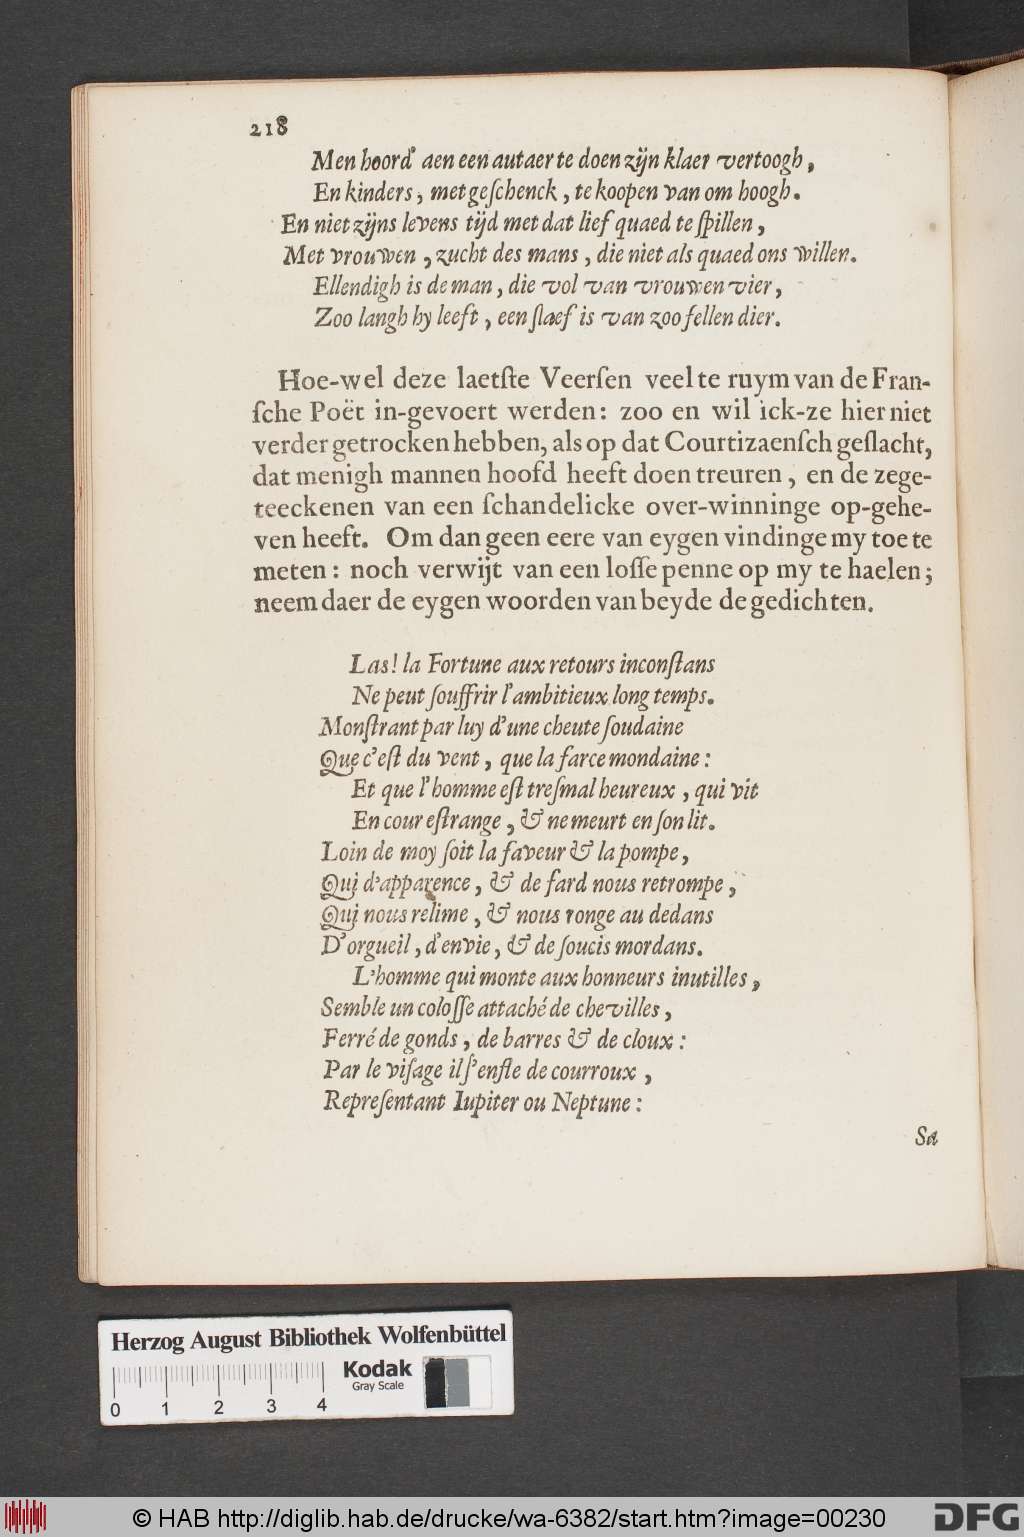 218
Men hoord' aen een autaer te doen zijn klaer vertoogh,
En kinders, met geſchenck, te koopen van om hoogh.
En niet zijns levens tijd met dat lief quaed te ſpillen,
Met vrouwen, zucht des mans, die niet als quaed ons willen.
Ellendigh is de man, die vol van vrouwen vier,
Zoo langh hy leeft, een ſlaef is van zoo fellen dier.
Hoe-wel deze laetſte Veerſen veel te ruym van de Fran-
ſche Poët in-gevoert werden: zoo en wil ick-ze hier niet
verder getrocken hebben, als op dat Courtizaenſch geſlacht,
dat menigh mannen hoofd heeft doen treuren, en de zege-
teeckenen van een ſchandelicke over-winninge op-gehe-
ven heeft. Om dan geen eere van eygen vindinge my toe te
meten: noch verwijt van een loſſe penne op my te haelen;
neem daer de eygen woorden van beyde de gedichten.
Las! la Fortune aux retours inconſtans
Ne peut ſouffrir l'ambitieux long temps.
Monſtrant par luy d'une cheute ſoudaine
Que c'eſt du vent, que la farce mondaine:
Et que l'homme eſt treſmal heureux, qui vit
En cour eſtrange, & ne meurt en ſon lit.
Loin de moy ſoit la faveur & la pompe,
Qui d'apparence, & de fard nous retrompe,
Qui nous relime, & nous ronge au dedans
D'orgueil, d'envie, & de ſoucis mordans.
L'homme qui monte aux honneurs inutilles,
Semble un coloſſe attaché de chevilles,
Ferré de gonds, de barres & de cloux:
Par le viſage il ſ'enfle de courroux,
Repreſentant Iupiter ou Neptune:
Sa
Herzog August Bibliothek Wolfenbüttel
Kodak
Gray Scale
0 1 2 3 4
© HAB http://diglib.hab.de/drucke/wa-6382/start.htm?image=00230
DFG